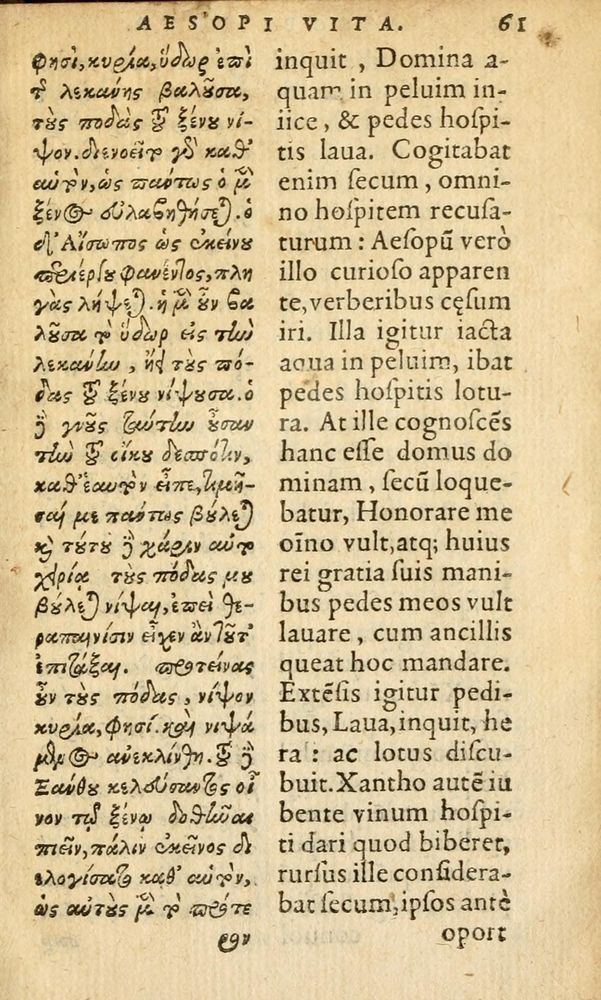 AESOPI VITA. 61
φησὶ, κυρία, ὕδωρ ἐπὶ
τ̃ λεκάνης βαλοῦσα,
τοὺς πόδας τοῦ ξένου νί-
ψον. διενοεῖτο γὰρ καθ'
αὑτὸν, ὡς πάντως ὁ μὲν
ξένος εὐλαβηθήσεται. ὁ
δ' Αἴσωπος ὡς ἐκείνου
περιέργου φανέντος, πλη
γὰς λήψεται. ἡ μὲν οὖν βα
λοῦσα τὸ ὕδωρ εἰς τὴν
λεκάνην, ᾔει τοὺς πό-
δας τοῦ ξένου νίψουσα. ὁ
δὲ γνοὺς ταύτην οὖσαν
τὴν τοῦ οἴκου δεσπότιν,
καθ' ἑαυτὸν εἶπε, τιμῆ-
σαί με πάντως βούλεται
καὶ τούτου δὲ χάριν αὐτο
χειρία τοὺς πόδας μου
βούλεται νίψαι, ἐπεὶ θε-
ραπαινίσιν εἶχεν ἂν τοῦτ'
ἐπιτάξαι. προτείνας
οὖν τοὺς πόδας, νίψον
κυρία, φησί. καὶ νιψά
μενος ἀνεκλίνθη. τοῦ δὲ
Ξάνθου κελεύσαντος οἶ
νον τῷ ξένῳ δοθῆναι
πιεῖν, πάλιν ἐκεῖνος δι
ελογίσατο καθ' αὑτὸν,
ὡς αὐτοὺς μὲν τὸ πρότε
ρον
inquit, Domina a-
quam in peluim in-
iice, & pedes hospi-
tis laua. Cogitabat
enim secum, omni-
no hospitem recusa-
turum: Aesopũ verò
illo curioso apparen
te, verberibus cęsum
iri. Illa igitur iacta
aqua in peluim, ibat
pedes hospitis lotu-
ra. At ille cognoscẽs
hanc esse domus do
minam, secũ loque-
batur, Honorare me
oĩno vult, atq; huius
rei gratia suis mani-
bus pedes meos vult
lauare, cum ancillis
queat hoc mandare.
Extẽsis igitur pedi-
bus, Laua, inquit, he
ra: ac lotus discu-
buit. Xantho autẽ iu
bente vinum hospi-
ti dari quod biberet,
rursus ille considera-
bat secum, ipsos antè
oport